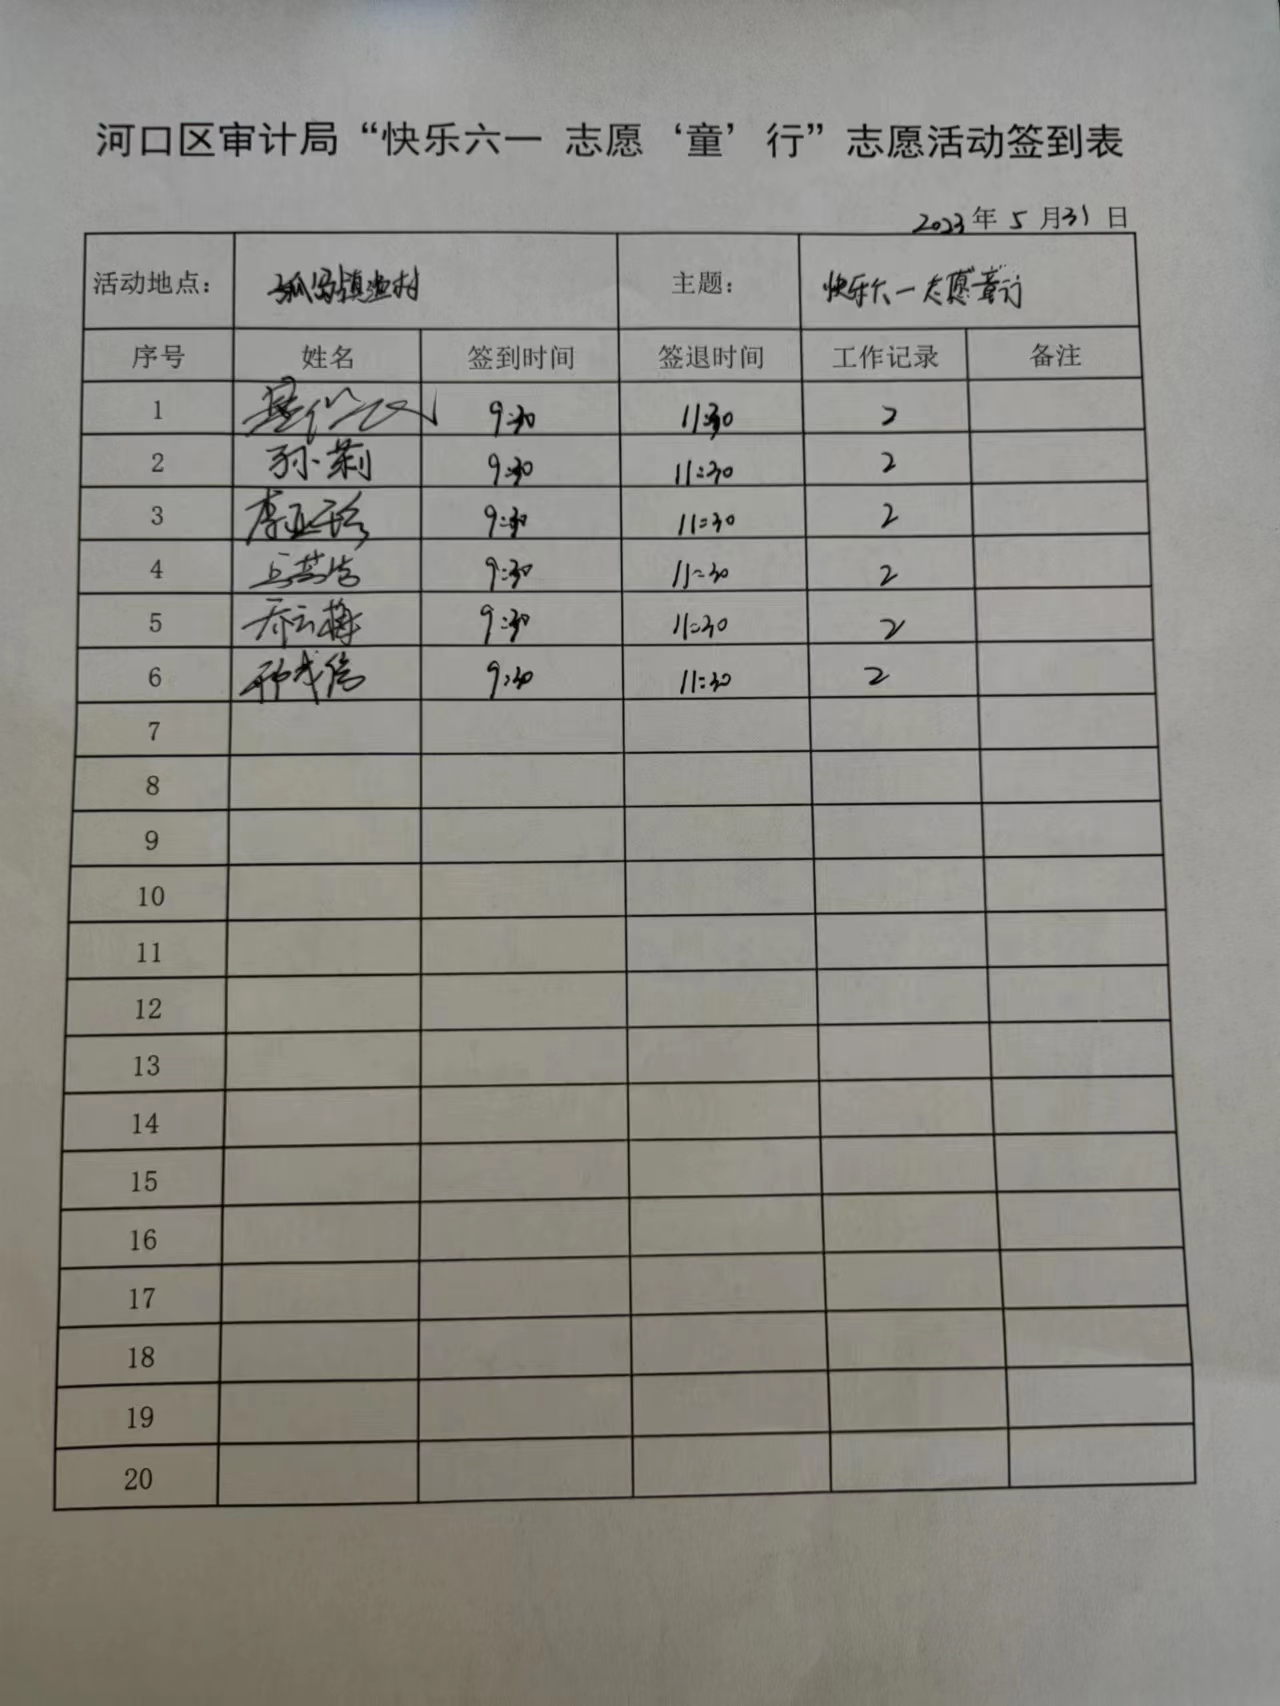 河口区审计局“快乐六一 志愿‘童’行”志愿活动签到表
2023年 5 月31日
活动地点： 孤岛镇渔村 主题： 快乐六一志愿“童”行
序号 姓名 签到时间 签退时间 工作记录 备注
1 9:30 11:30 2
2 孙莉 9:30 11:30 2
3 李亚珍 9:30 11:30 2
4 9:30 11:30 2
5 乔云梅 9:30 11:30 2
6 9:30 11:30 2
7
8
9
10
11
12
13
14
15
16
17
18
19
20